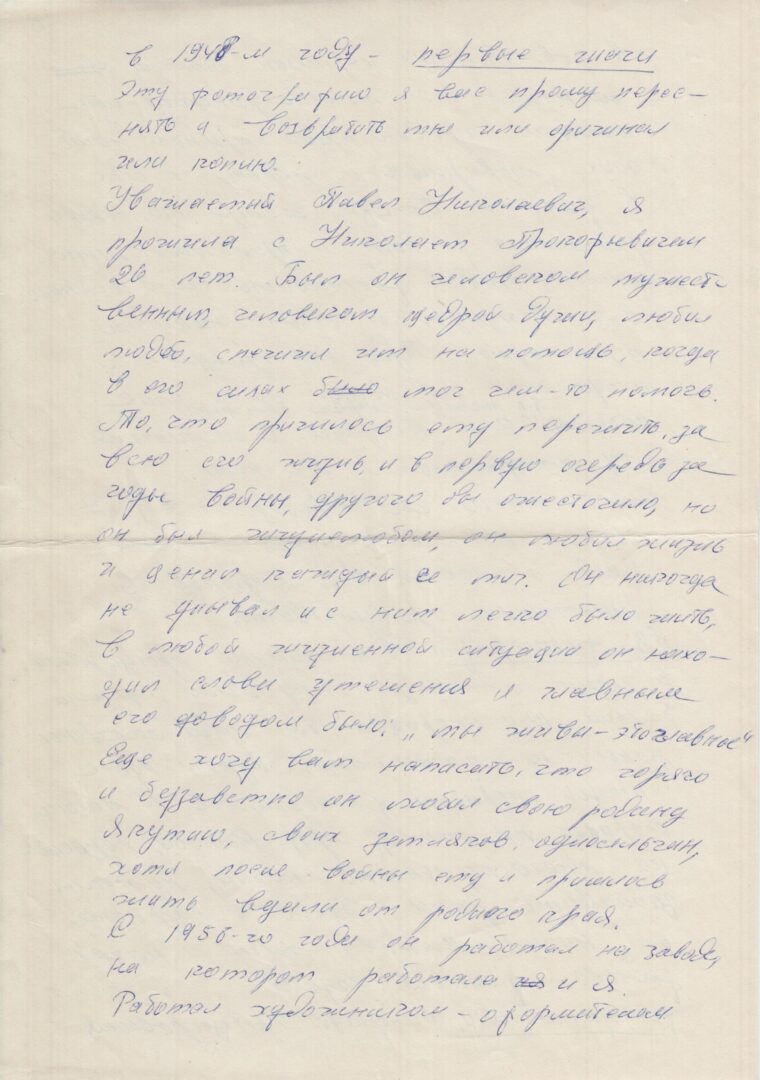 в 1948-м году - первые шаги
Эту фотографию я вас прошу перес-
нять и возвратить мне или оригинал
или копию.
Уважаемый Павел Николаевич, я
прожила с Николаем Прокофьевичем
26 лет. Был он человеком мужест-
венным, человеком щедрой души, любил
людей, спешил им на помощь, когда
в его силах было мог чем-то помочь.
То, что пришлось ему пережить, за
всю его жизнь, и в первую очередь за
годы войны, другого бы ожесточило, но
он был жизнелюбом, он любил жизнь
и ценил каждый ее миг. Он никогда
не унывал и с ним легко было жить,
в любой жизненной ситуации он нахо-
дил слова утешения и главным
его доводом было: „мы живы - это главное"
Еще хочу вам написать, что горячо
и беззаветно он любил свою родину
Якутию, своих земляков, односельчан,
хотя после войны ему и пришлось
жить вдали от родного края.
С 1956-го года он работал на заводе,
на котором работала и я.
Работал художником-оформителем